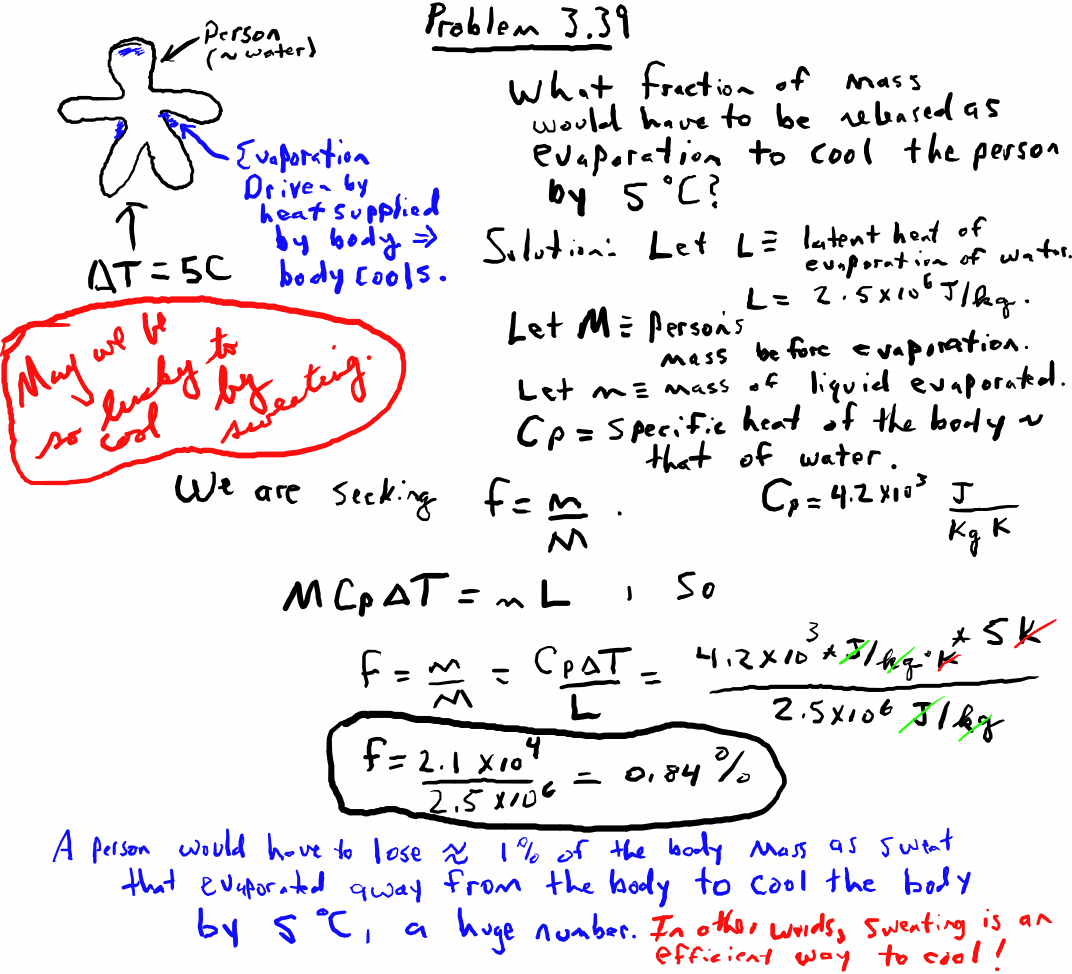 Problem 3.39
Person
(~ water)
What fraction of mass
would have to be released as
evaporation to cool the person
by 5 °C?
Evaporation
Driven by
heat supplied
by body ⇒
body cools.
ΔT = 5C
Solution: Let L ≡ latent heat of
evaporation of water.
L = 2.5×10⁶ J/kg.
May we be
so lucky to
cool by
sweating.
Let M ≡ Person's
mass before evaporation.
Let m ≡ mass of liquid evaporated.
Cp = Specific heat of the body ~
that of water.
Cp = 4.2×10³ J/Kg K
We are seeking f = m/M .
M Cp ΔT = m L , So
f = m/M = Cp ΔT/L = 4.2×10³ * J/kg·K * 5 K / 2.5×10⁶ J/kg
f = 2.1×10⁴/2.5×10⁶ = 0.84 %
A person would have to lose ≈ 1% of the body mass as sweat
that evaporated away from the body to cool the body
by 5 °C, a huge number. In other words, sweating is an
efficient way to cool!